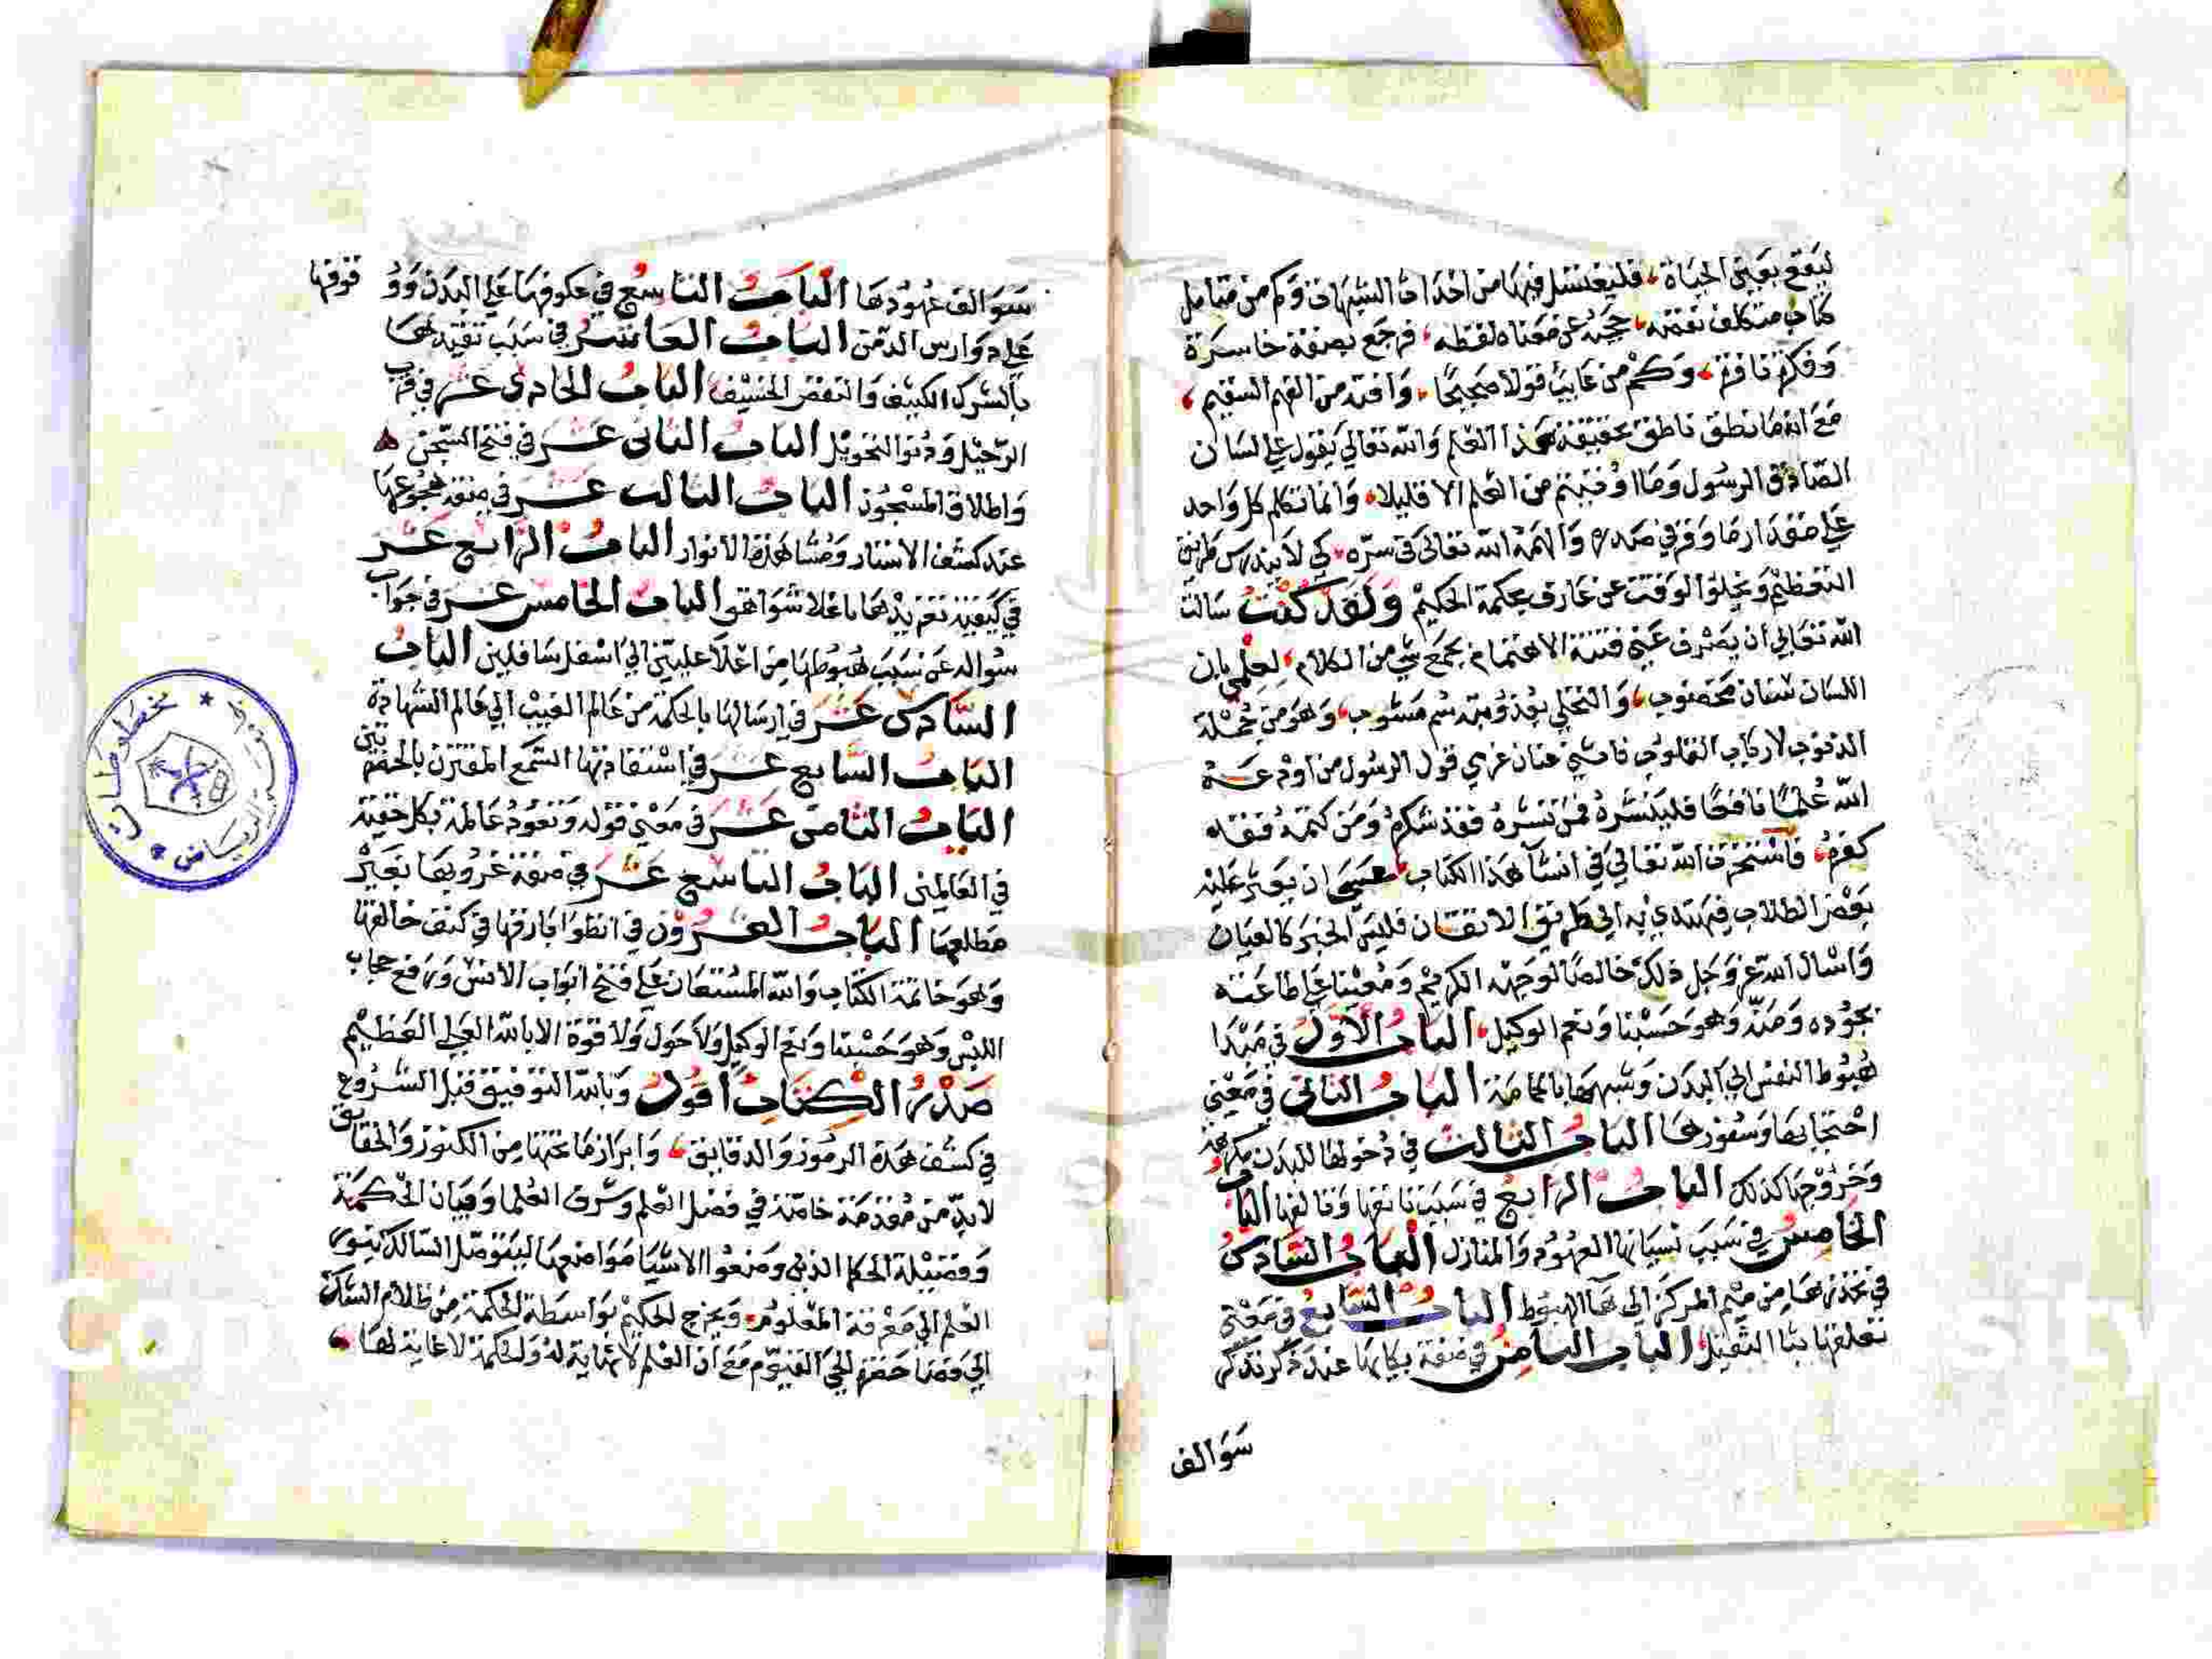 ليقع بعين الحياة فليغتسل فيها من احداث الشبهات وكم من متامل
كتاب متكلف تفهمه حجبه عن معناه لفظه فرجع بصفقة خاسرة
وفكرة نافرة وكم من عايب قولا صحيحا وافته من الفهم السقيم
مع انه ما نطق ناطق بحقيقة هذا العلم والله تعالي يقول علي لسان
الصادق الرسول وما اوتيتم من العلم الا قليلا وانما تكلم كل واحد
علي مقدار ما وقر في صدره والهمه الله تعالى في سره كي لا يندرس طريق
التعظيم ويخلو الوقت عن عارف بحكمة الحكيم ولقد كنت سالت
الله تعالي ان يصرف عني فتنة الاهتمام بجمع شي من الكلام لعلمي بان
اللسان سنان مخضوب والتحلي بعذوبته سم مشوب وهو من جملة
الذنوب لارباب القلوب فامشي عنان عزمي قول الرسول من اودعه
الله علما نافعا فلينشره فمن نشره فقد شكره ومن كتمه فقد
كفره فاستخرت الله تعالي في انشآ هذا الكتاب عسى ان يعثر عليه
بعض الطلاب فيهتدي به الي طريق الاتقان فليس الخبر كالعيان
واسال الله عز وجل ذلك خالصا لوجهه الكريم ومعينا علي طاعته
بجوده ومنه وهو حسبنا ونعم الوكيل الباب الاول في مبدا
هبوط النفس الي البدن وشبهها بالحمامة الباب الثاني في معني
احتجابها وسفورها الباب الثالث في دخولها للبدن مكرهة
وخروجها كذلك الباب الرابع في سبب تانفها وتالفها الباب
الخامس في سبب نسيانها العهود والمنازل الباب السادس
في تحذرها من ميم المركز الي هآ الهبوط الباب السابع في معني
تعلقها بثا الثقيل الباب الثامن في صفة بكايها عند ذكر تذكر
سوالف
سوالف عهودها الباب التاسع في عكوفها علي البدن ووقوفها
علي دوارس الدمن الباب العاشر في سبب تقيدها
بالشرك الكثيف والقفص الخسيف الباب الحادي عشر في قرب
الرحيل ودنو التحويل الباب الثاني عشر في فتح السجن
واطلاق المسجون الباب الثالث عشر في صفة هجوعها
عند كشف الاستار ومشاهدة الانوار الباب الرابع عشر
في كيفية تغريدها باعلا شواهق الباب الخامس عشر في جواب
سوالد عن سبب هبوطها من اعلا عليين الي اسفل سافلين الباب
السادس عشر في ارسالها بالحكمة من عالم الغيب الي عالم الشهادة
الباب السابع عشر في استفادتها السمع المقترن بالحقيقتين
الباب الثامن عشر في معني قوله وتعود عالمة بكل خفية
في العالمين الباب التاسع عشر في صفة غروبها بغير
مطلعها الباب العشرون في انطوا بارقها في كنف خالقها
وهو خاتمة الكتاب والله المستعان علي فتح ابواب الانس ورفع حجاب
اللبس وهو حسبنا ونعم الوكيل ولا حول ولا قوة الا بالله العلي العظيم
صدر الكتاب اقول وبالله التوفيق قبل الشروع
في كشف هذه الرموز والدقايق وابراز ما تحتها من الكنوز والحقايق
لابد من مقدمة خاصة في فضل العلم وشرف العلما وبيان الحكمة
وفضيلة الحكما الذين وضعوا الاشيا مواضعها ليتوصل السالك بنور
العلم الي معرفة المعلوم ويخرج الحكيم بواسطة الحكمة من ظلام الشك
الي فضا حضرة الحي القيوم مع ان العلم لا نهاية له والحكمة لا غاية لها
مخطوطات الرياض